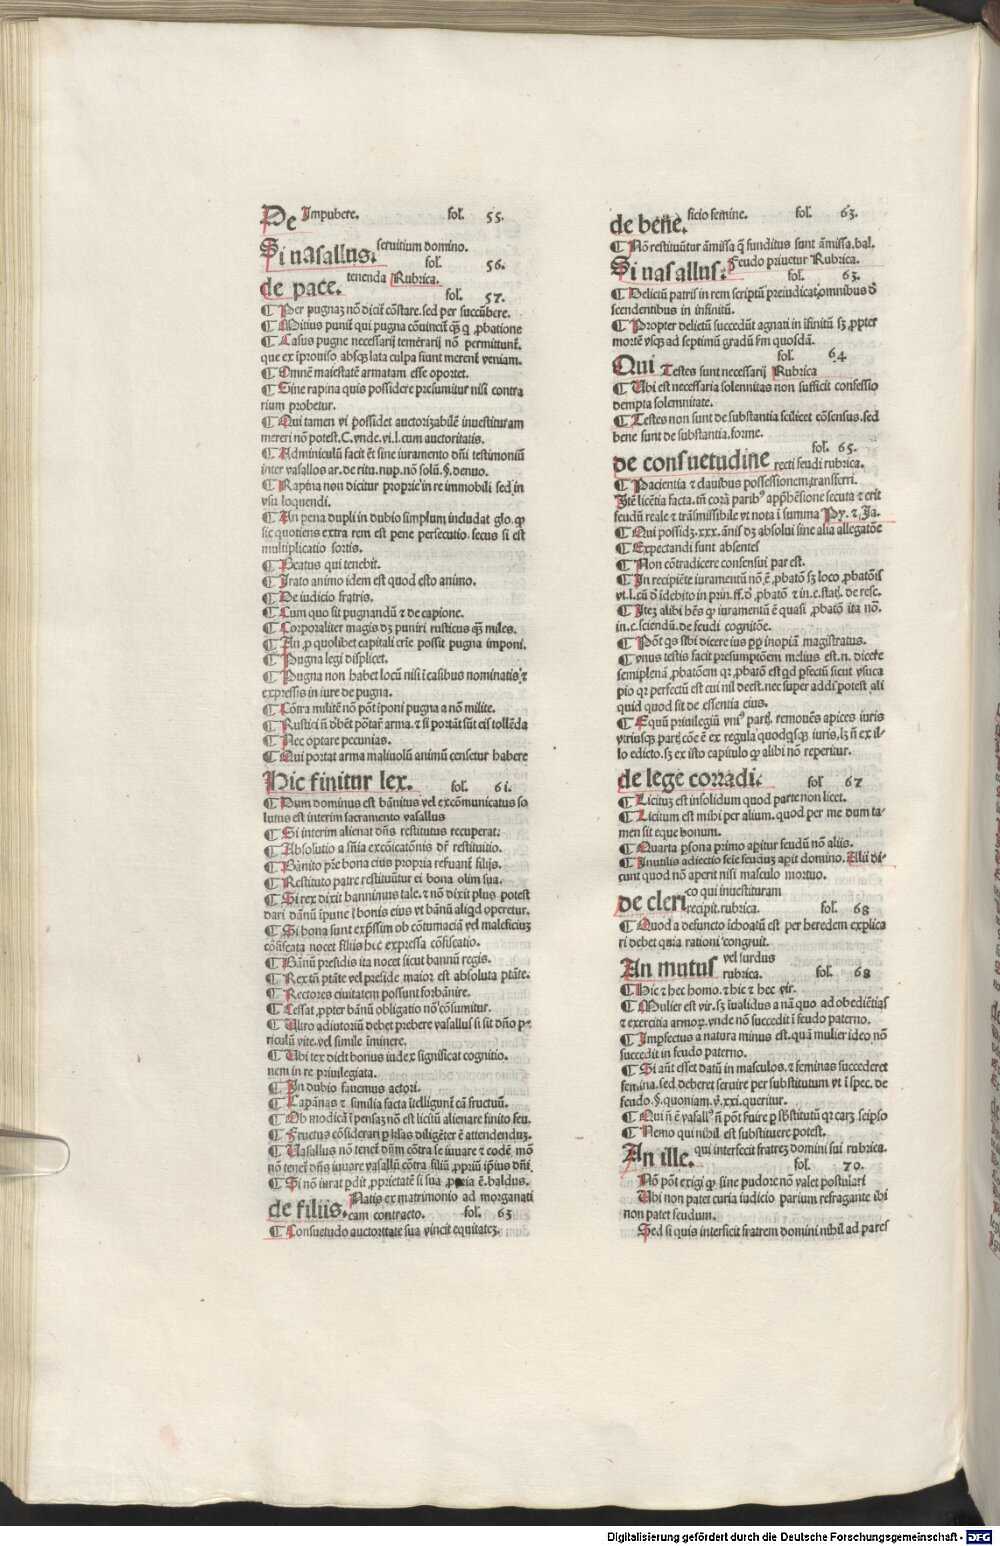 De Impubere. fol. 55.
Si uasallus. seruitium domino.
fol. 56.
de pace. tenenda Rubrica.
fol. 57.
¶ Per pugnaz nō dicit̄ cōstare. sed per succūbere.
¶ Mitius punit̄ qui pugna cōuincit̄ qȝ q ꝓbatione
¶ Casus pugne necessarij temerarij nō permittunt̄.
que ex īprouiso absqȝ lata culpa fiunt merent̄ veniam.
¶ Omnē maiestatē armatam esse oportet.
¶ Sine rapina quis possidere presumitur nisi contra
rium probetur.
¶ Qui tamen vi possidet auctorizabilē inuestituram
mereri nō potest. C. vnde. vi. l. cum auctoritatis.
¶ Adminiculū facit et̄ sine iuramento dn̄i testimoniū
inter vasallos ar. de ritu. nup. nō solū. §. denuo.
¶ Rapina non dicitur proprie in re immobili sed in
vsu loquendi.
¶ An pena dupli in dubio simplum includat glo. ꝙ
sic quotiens extra rem est pene persecutio. secus si est
multiplicatio sortis.
¶ Pcatus qui tenebit̄.
¶ Irato animo idem est quod esto animo.
¶ De iudicio fratris.
¶ Cum quo sit pugnandū ⁊ de capione.
¶ Corporaliter magis dȝ puniri rusticus qȝ miles.
¶ An ꝓ quolibet capitali crīe possit pugna imponi.
¶ Pugna legi displicet.
¶ Pugna non habet locū nisi ī casibus nominatis ⁊
expressis in iure de pugna.
¶ Cōtra militē nō pōt īponi pugna a nō milite.
¶ Rustici n̄ dn̄t pōtar̄ arma. ⁊ si portāt sūt eis tollēda
¶ Nec optare pecunias.
¶ Qui portat arma maliuolū animū censetur habere
Hic finitur lex. fol. 61.
¶ Dum dominus est bānitus vel excōmunicatus so
lutus est interim sacramento vasallus
¶ Si interim alienat dn̄s restitutus recuperat.
¶ Absolutio a sn̄ia excōicatōnis dr̄ restitutio.
¶ Bānito pr̄e bona eius propria reseruant̄ filijs.
¶ Restituto patre restituūtur ei bona olim sua.
¶ Si rex dixit banninus tale. ⁊ nō dixit plus potest
dari dānū īpune ī bonis eius vt bānū aliqd operetur.
¶ Si bona sunt exp̄ssim ob cōtumaciā vel maleficiuȝ
cōfiscata nocet filiis hec expressa cōfiscatio.
¶ Bānū presidis ita nocet sicut bannū regis.
¶ Rex tn̄ ptāte vel preside maior est absoluta ptāte.
¶ Rectores ciuitatem possunt forbānire.
¶ Cessat ꝓpter bānū obligatio nō cōsumitur.
¶ Ultro adiutoriū debet prebere vasallus si sit dn̄o pe
riculū vite. vel simile īminere.
¶ Ubi lex dicit bonus iudex significat cognitio.
nem in re priuilegiata.
¶ In dubio fauemus actori.
¶ Capānas ⁊ similia facta ītelligunt̄ cā fructuū.
¶ Ob modicā īpensaȝ nō est licitū alienare finito feu.
¶ Fructus cōsiderari p̄ hr̄as diligēter ē attendenduȝ.
¶ Uasallus nō tenet̄ dn̄m cōtra se iuuare ⁊ eodē mō
nō tenet̄ dn̄s iuuare vasallū cōtra filiū ꝓpriū ip̄ius dn̄i
¶ Si nō iurat pdit ꝓprietatē si sua ē. baldus.
de filiis. Natis ex matrimonio ad morganati
cam contracto. fol. 63
¶ Consuetudo auctoritate sua vincit equitatez.
de bene. ficio femine. fol. 63.
¶ Nō restituūtur āmissa q̄ funditus sunt āmissa. bal.
Si uasallus. Feudo priuetur Rubrica.
fol. 63.
¶ Delictū patris in rem scriptū preiudicat omnibus d̄
scendentibus in infinitū.
¶ Propter delictū succedūt agnati in īfinitū sȝ ꝓpter
mortē vsqȝ ad septimū gradū fm quosdā.
fol. 64
Qui Testes sunt necessarij Rubrica
¶ Ubi est necessaria solennitas non sufficit confessio
dempta solemnitate.
¶ Testes non sunt de substantia scilicet cōsensus. sed
bene sunt de substantia. forme.
fol. 65.
de consuetudine recti feudi rubrica.
¶ Pacientia ⁊ clausibus possessionem transferri.
Itē licētia facta. tn̄ corā parib⁹ app̄hēsione secuta ⁊ erit
feudū reale ⁊ trāsmissibile vt nota ī summa Py. ⁊ Ja.
¶ Qui possidȝ. xxx. ānis dȝ absolui sine alia allegatōe
¶ Expectandi sunt absentes
¶ Non cōtradicere consensui par est.
¶ In recipiēte iuramentū nō ē ꝓbatō sȝ loco ꝓbatōis
vt. l. cū d̄ īdebito in prin. ff. d̄ ꝓbatō ⁊ in. c. statȝ. de resc.
¶ Iteȝ alibi hēs ꝙ iuramentū ē quasi ꝓbatō ita nō.
in. c. sciendū. de feudi cognitōe.
¶ Pōt qs sibi dicere ius ꝓp inopiā magistratus.
¶ vnus testis facit presumptōem melius est. n. dicere
semiplenā ꝓbatōem qꝛ ꝓbatō est qd ꝑfectū sicut vsuca
pio qꝛ perfectū est cui nil deest. nec super addi potest ali
quid quod sit de essentia eius.
¶ Equū priuilegiū vni⁹ partȝ. remouēs apices iuris
vtriusqȝ partȝ cōe ē ex regula quodqȝsqȝ iuris, lȝ n̄ ex il-
lo edicto. sȝ ex isto capitulo ꝙ alibi nō reperitur.
de lege corradi. fol 67
¶ Licituȝ est insolidum quod parte non licet.
¶ Licitum est mihi per alium. quod per me dum ta-
men sit eque bonum.
¶ Quarta ꝑsona primo aperitur feudū nō aliis.
¶ Inutilis adiectio feīe feuduȝ aperit domino. Alii di-
cunt quod nō aperit nisi masculo mortuo.
de cleri co qui inuestituram
recipit. rubrica. fol. 68
¶ Quod a defuncto īchoatū est per heredem explica
ri debet quia rationi congruit.
An mutus vel surdus
rubrica. fol. 68
¶ Hic ⁊ hec homo. ⁊ hic ⁊ hec vir.
¶ Mulier est vir. sȝ īualidus a nā quo ad obediētias
⁊ exercitia armoꝝ. vnde nō succedit ī feudo paterno.
¶ Impfectus a natura minus est. quā mulier ideo nō
succedit in feudo paterno.
¶ Si aūt esset datū in masculos. ⁊ feminas succederet
femina. sed deberet seruire per substitutum vt ī spec. de
feudo. §. quoniam. ꝟ. xxi. queritur.
¶ Qui n̄ ē vasall⁹ n̄ pōt ẜuire ꝑ sb̄stitutū qꝛ carȝ seipso
¶ Nemo qui nihil est substituere potest.
An ille. qui interfecit fratreȝ domini sui rubrica.
fol. 70.
Nō pōt exigi ꝙ sine pudore nō valet postulari
Ubi non patet curia iudicio parium refragante ibi
non patet feudum.
Sed si quis interficit fratrem domini nihil ad pares
Digitalisierung gefördert durch die Deutsche Forschungsgemeinschaft - DFG